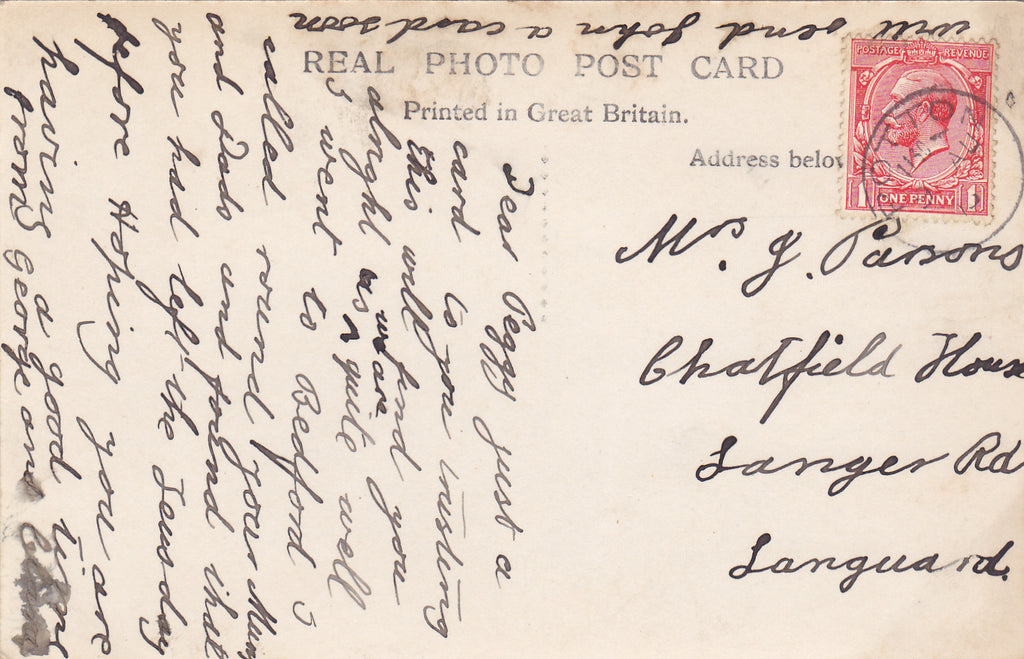 will send John a card soon
REAL PHOTO POST CARD
Printed in Great Britain.
Address below
POSTAGE REVENUE
1 ONE PENNY 1
Mrs. J. Parsons
Chatfield House
Langer Rd
Languard.
Dear Peggy just a
card to you trusting
this will find you
alright as we are quite well
I went to Bedford I
called round your Mum
and Dads and found that
you had left the Teusday
before Hoping you are
having a good time
from George and